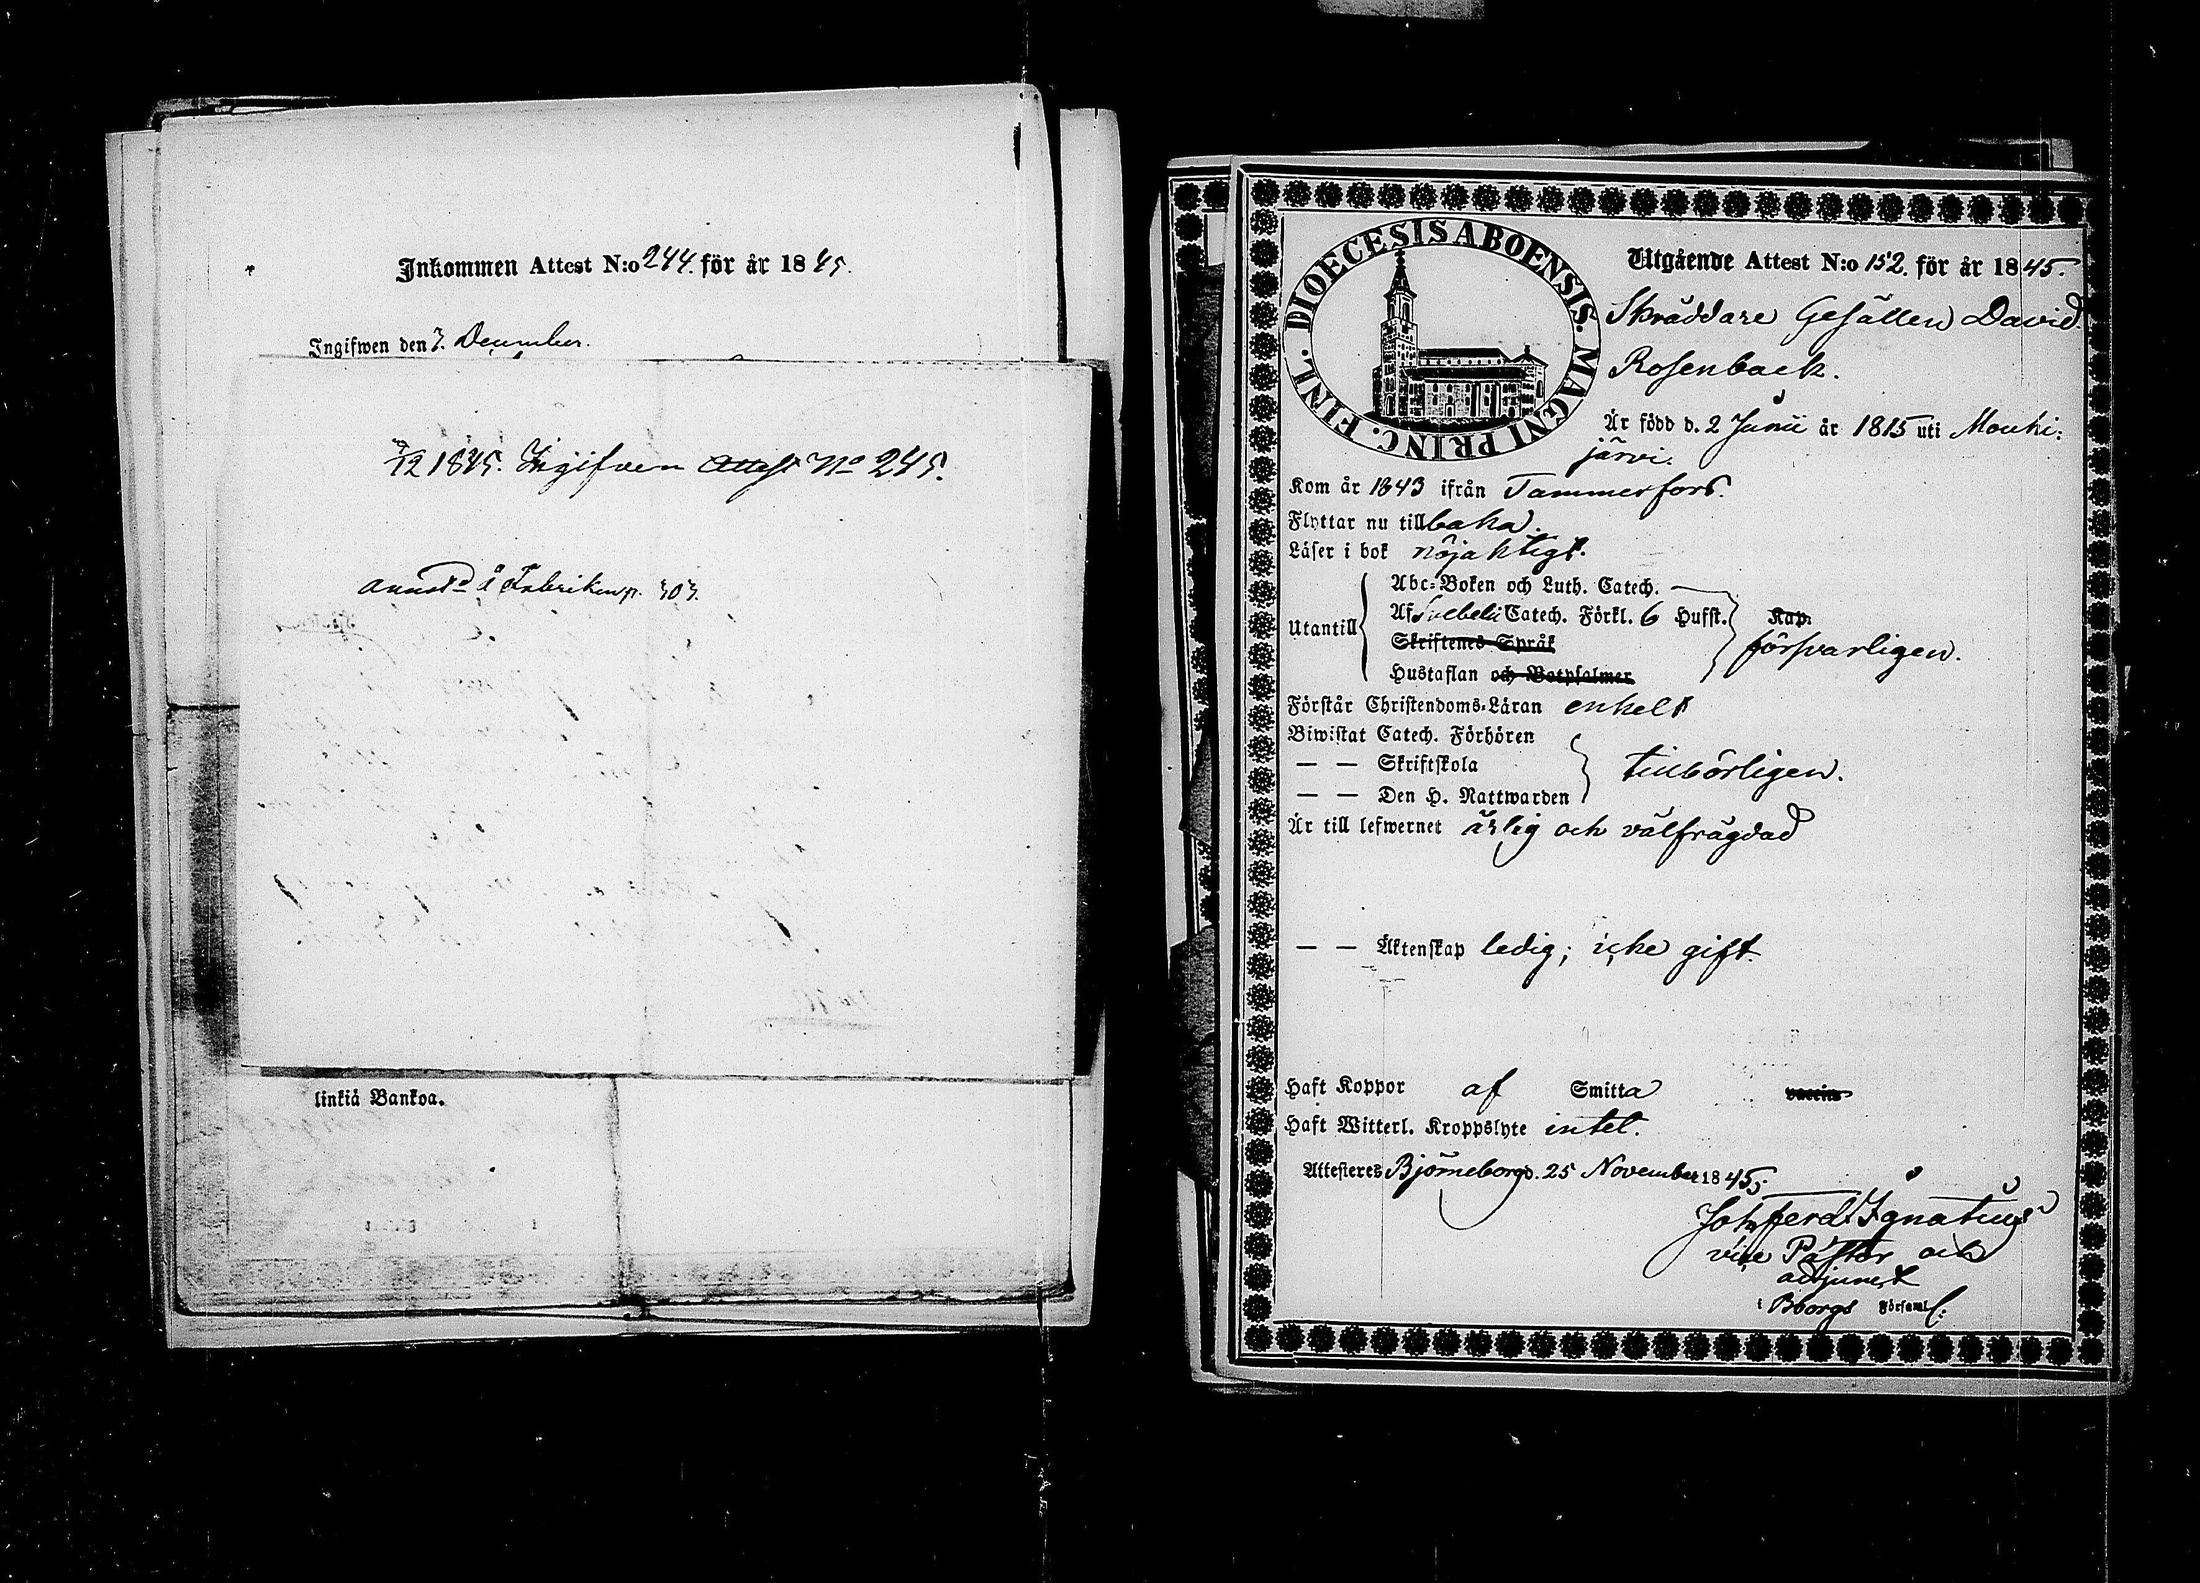 Inkommen Attest N:o 244. för år 1845.
Ingifwen den 7. December.
9/12 1845. Ingifven Attest No 245.
annot:d å Fabriken p. 303.
linkiä Bankoa.
DIOECESIS ABOENSIS. MAGNI PRINC. FINL.
Utgående Attest N:o 152. för år 1845.
Skräddare Gesällen David
Rosenback.
Är född d. 2 Junii år 1815 uti Mouhi:
järvi.
Kom år 1843 ifrån Tammerfors.
Flyttar nu tillbaka.
Läser i bok nöjaktigt.
Abc-Boken och Luth. Catech.
Utantill Af Svebelii Catech. Förkl. 6 Hufst. Kap.
Skriftenes Språk försvarligen.
Hustaflan och Botpsalmer
Förstår Christendoms-Läran enkelt
Biwistat Catech. Förhören
— — Skriftskola tillbörligen.
— — Den H. Nattwarden
Är till lefwernet ärlig och välfrägdad
— — Äktenskap ledig; icke gift.
Haft Koppor af Smitta vaccin
Haft Witterl. Kroppslyte intet.
Attesteres Björneborg d. 25 November 1845;
Joh Ferd Ignatius
vice Pastor och
adjunct
i Bborgs Församl: